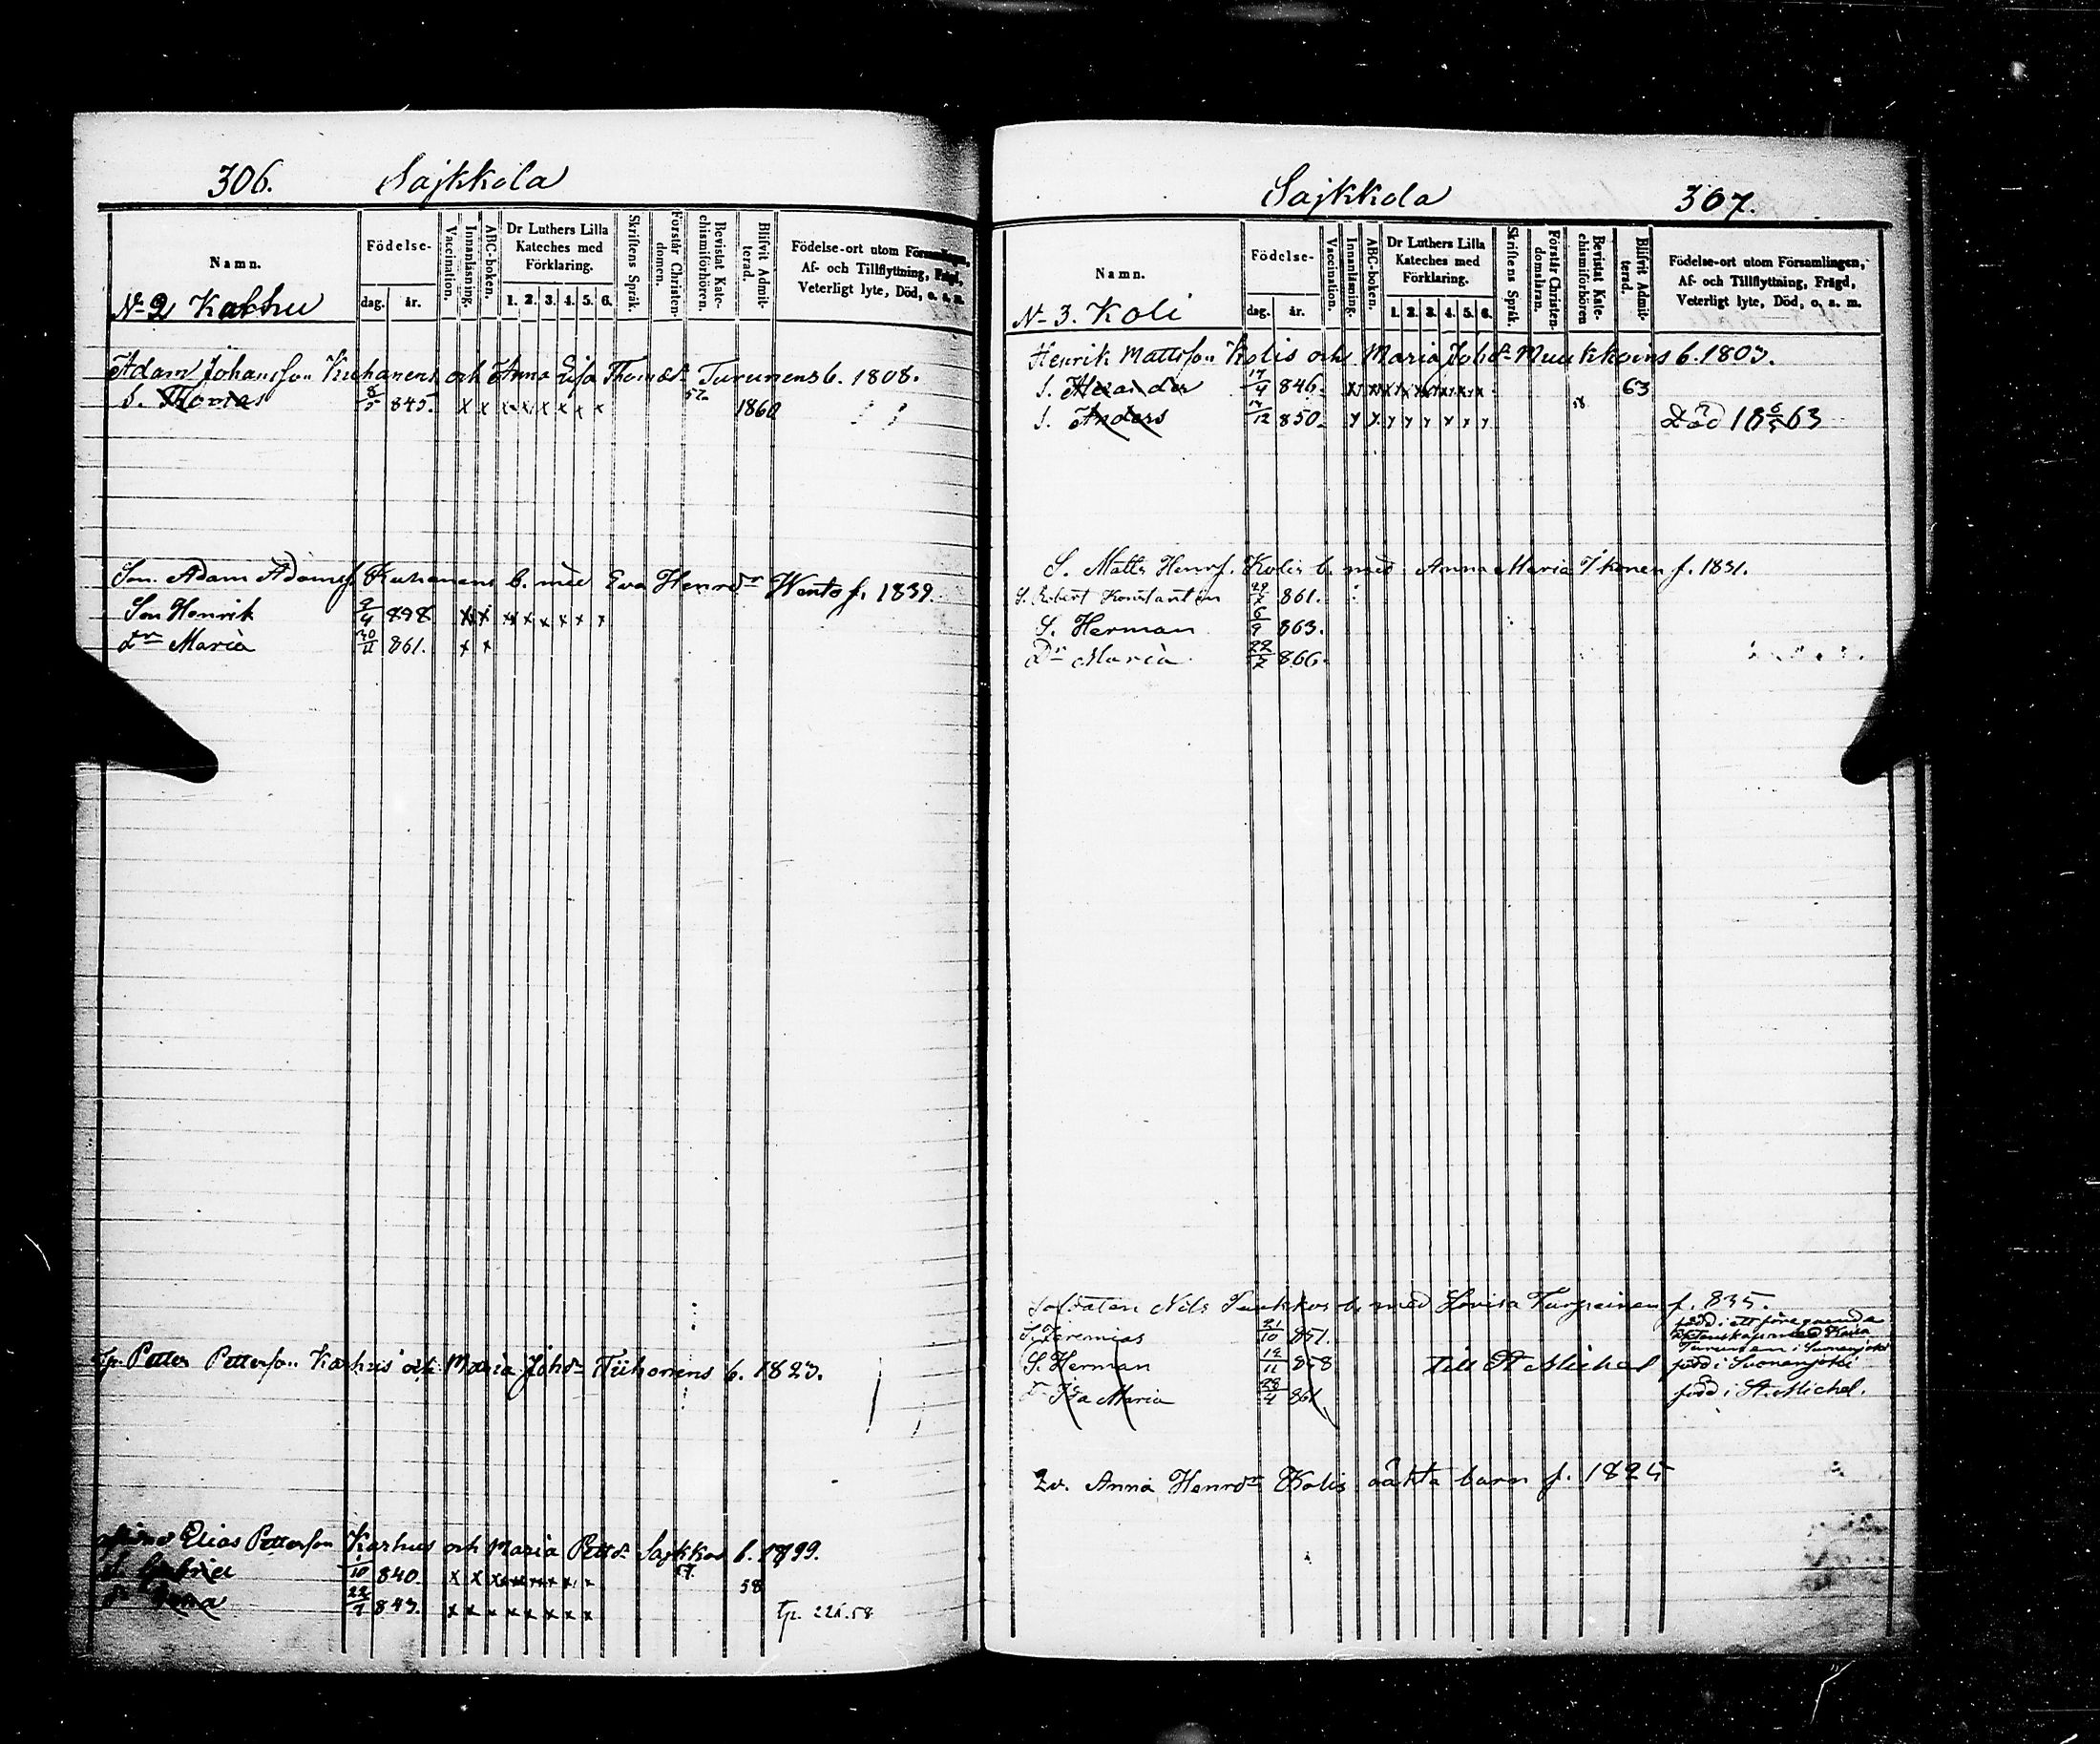 306. Sajkkola
Namn.
Födelse-
dag. år.
Vaccination.
Innanläsning.
ABC-boken.
Dr Luthers Lilla Kateches med Förklaring.
1. 2. 3. 4. 5. 6.
Skriftens Språk.
Förstår Christendomen.
Bevistat Katechismiförhören.
Blifvit Admitterad.
Födelse-ort utom Församlingen,
Af- och Tillflyttning, Frägd,
Veterligt lyte, Död, o. s. m.
N- 2 Kakhu
Adam Johansson Kuhanens och Anna Lisa Thomasdr Turunens b. 1808.
S. Thomas 8/5 845. x x x x x x x x 57 1860
Son Adam Adamsf. Kuhanens b. med Eva Henrdr Wento f. 1839.
Son Henrik 2/4 898 x x x x x x x x
Dr Maria 30/11 861. x x
Petter Petterson Karhus och Maria Johdr Tiihonens b. 1823.
Elias Petterson Karhus och Maria Pettdr Sajkkos b. 1799.
S. Gabriel 1/10 840. x x x x x x x x 57 58
Dr Anna 22/7 843. x x x x x x x x
Sajkkola 307.
Namn.
Födelse-
dag. år.
Vaccination.
Innanläsning.
ABC-boken.
Dr Luthers Lilla Kateches med Förklaring.
1. 2. 3. 4. 5. 6.
Skriftens Språk.
Förstår Christendomsläran.
Bevistat Katechismiförhören
Blifvit Admitterad.
Födelse-ort utom Församlingen,
Af- och Tillflyttning, Frägd,
Veterligt lyte, Död, o, s. m.
N- 3. Koli
Henrik Mattsson Kolis och Maria Johdr Muukkoins b. 1803.
S. Alexander 17/4 846. x x x x x x x x 63
S. Anders 17/12 850. x x x x x x x x 58 Död 18 6/5 63
S. Matts Henrs. Kolis b. med Anna Maria Ikonen f. 1831.
S. Robert Konstantin 29/7 861.
S. Herman 6/9 863.
Dr Maria 22/7 866.
Soldaten Nils Tuukkos b. med Lovisa Turpeinen f. 835.
S. Jeremias 21/10 851. född i ett föregående
äktenskap med Kaisa
Turunen i Suonenjoki
S. Herman 12/11 858 Till St Michel född i Suonenjoki
Dr Ida Maria 28/4 861 född i St. Michel.
Anna Henrdr Kolis oäkta barn f. 1825